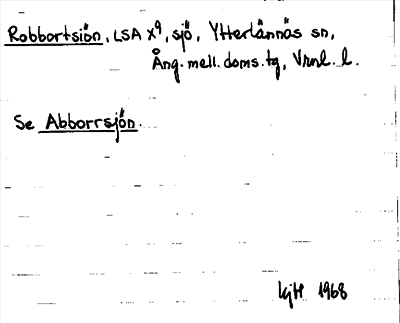 Robbortsiön, LSA X⁹, sjö, Ytterlännäs sn,
Ång. mell. doms. tg, Vrnl. l.
Se Abborrsjön.
KjH 1968